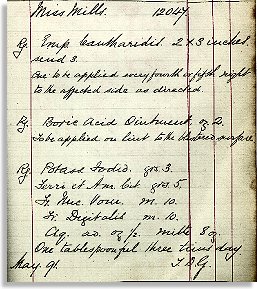 Miss Mills. 12047
Rx. Emp. Cantharidis. 2 x 3 inches.
send 3.
One to be applied every fourth or fifth night
to the affected side as directed.
Rx. Boric Acid Ointment oz 2.
To be applied on lint to the blistered surface
Rx. Potass Iodid. grs. 3.
Ferri et Am Cit grs. 5.
Tr. Nuc Vom. m. 10.
Tr. Digitalis m. 10.
Aq. ad. oz ½. mitte 8 oz.
One tablespoonful three times day
May. 91.